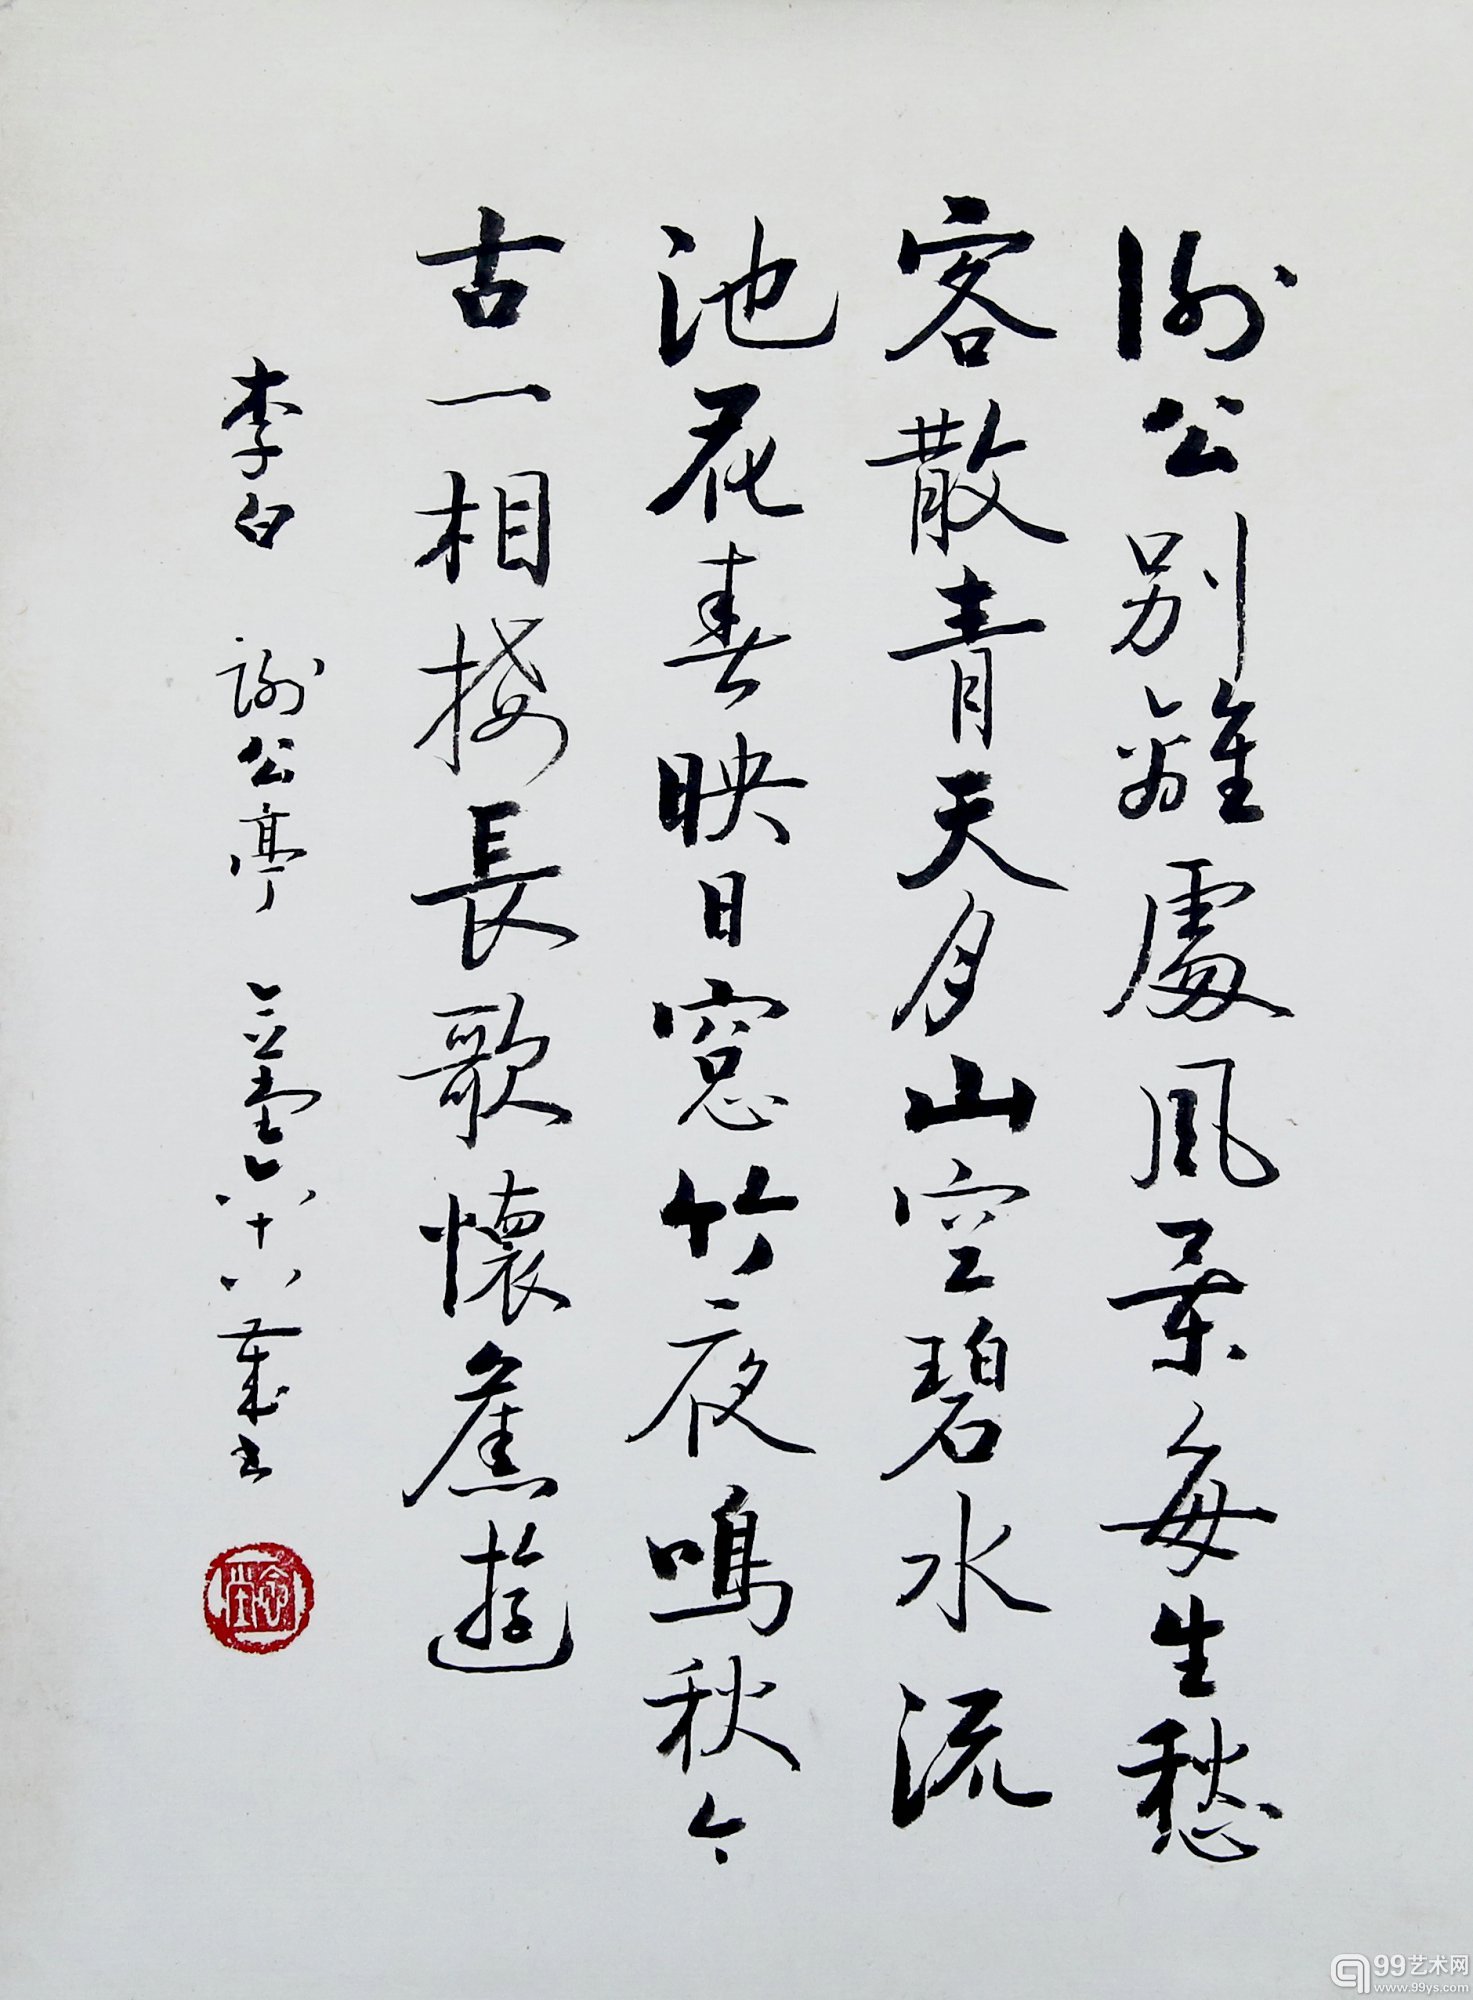 謝公別離處風景每生愁
客散青天月山空碧水流
池花春映日窓竹夜鳴秋今
古一相接長歌懷舊遊
李白 謝公亭 立堂六十八歲書
99艺术网
www.99ys.com